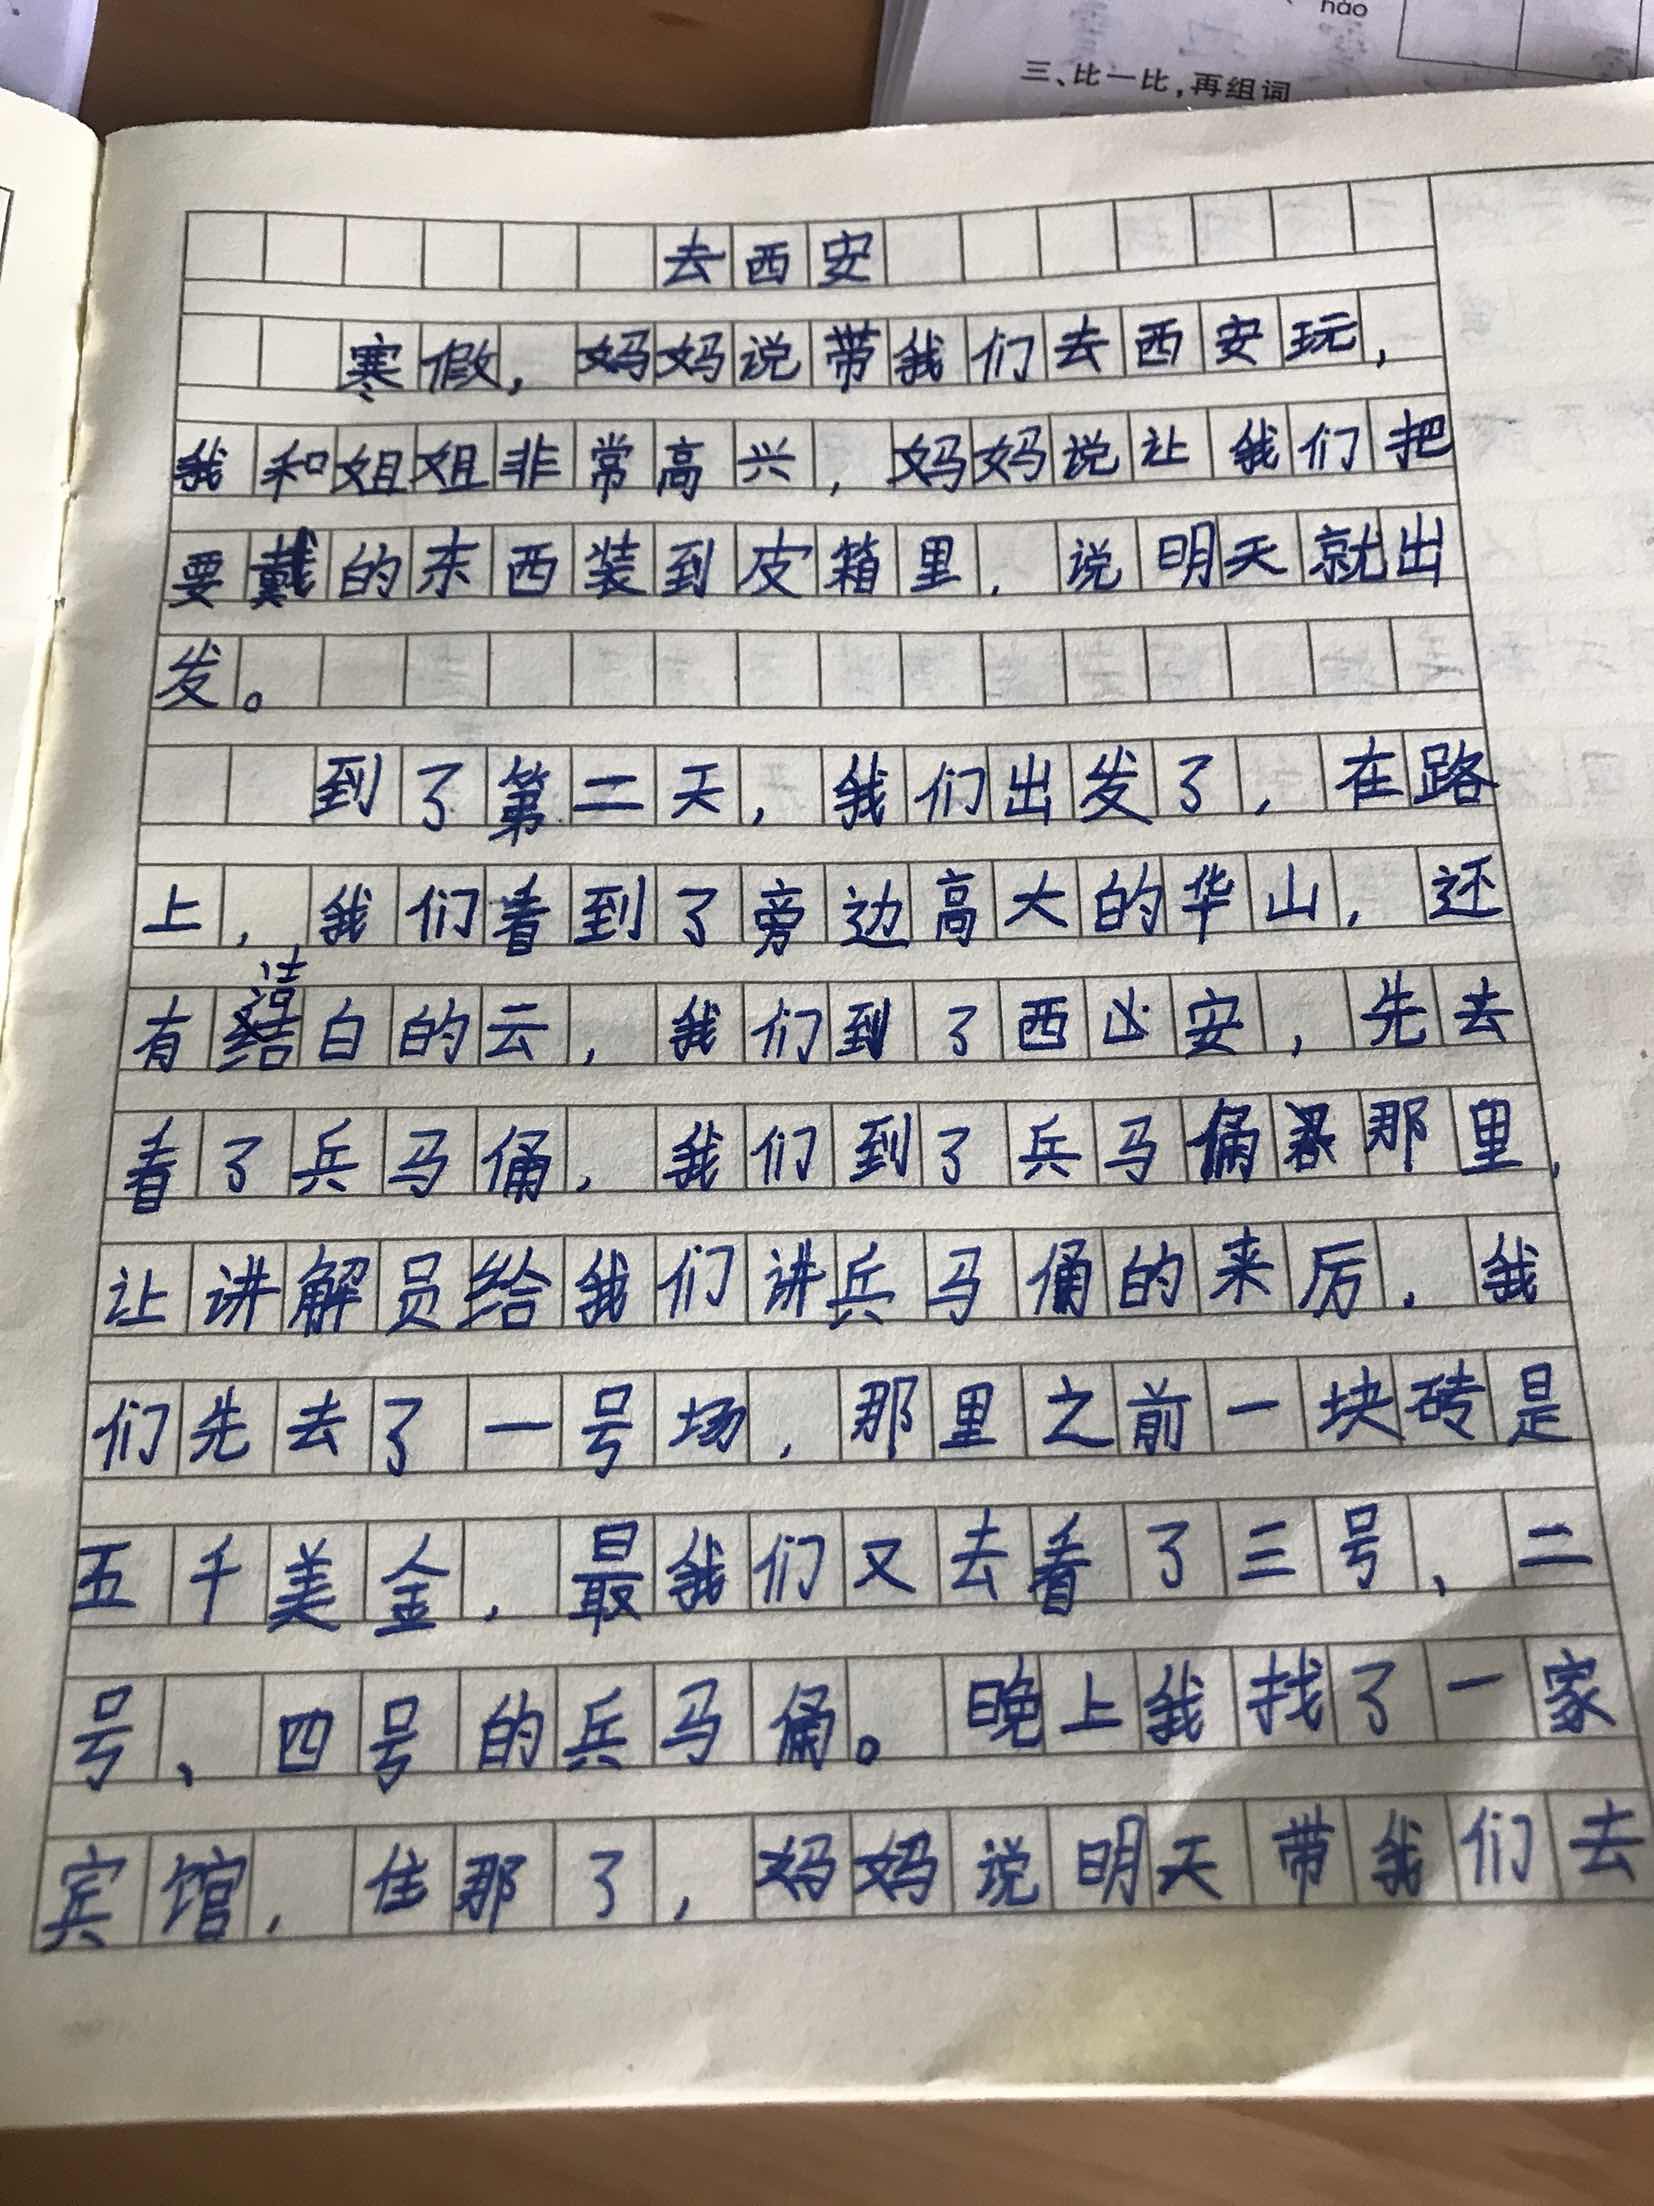 hǎo
三、比一比,再组词
去西安
寒假，妈妈说带我们去西安玩，
我和姐姐非常高兴，妈妈说让我们把
要戴的东西装到皮箱里，说明天就出
发。
到了第二天，我们出发了，在路
上，我们看到了旁边高大的华山，还
有洁白的云，我们到了西安，先去
看了兵马俑，我们到了兵马俑那里，
让讲解员给我们讲兵马俑的来历，我
们先去了一号场，那里之前一块砖是
五千美金，最我们又去看了三号、二
号、四号的兵马俑。晚上我找了一家
宾馆，住那了，妈妈说明天带我们去